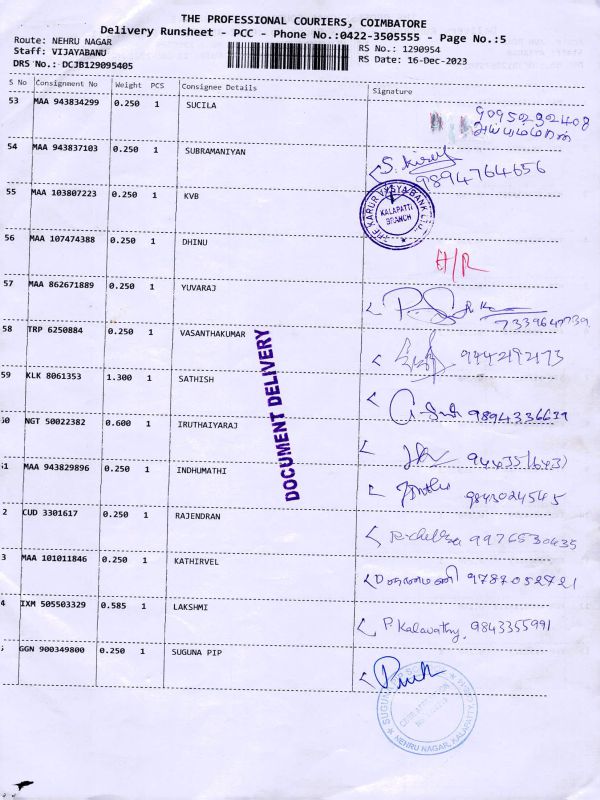 THE PROFESSIONAL COURIERS, COIMBATORE
Delivery Runsheet - PCC - Phone No.:0422-3505555 - Page No.:5
Route: NEHRU NAGAR
Staff: VIJAYABANU
DRS No.: DCJB129095405
RS No.: 1290954
RS Date: 16-Dec-2023
S No Consignment No Weight PCS Consignee Details Signature
53 MAA 943834299 0.250 1 SUCILA
54 MAA 943837103 0.250 1 SUBRAMANIYAN 9894764656
55 MAA 103807223 0.250 1 KVB
THE KARUR VYSYA BANK LTD. KALAPATTI BRANCH
56 MAA 107474388 0.250 1 DHINU H/R
57 MAA 862671889 0.250 1 YUVARAJ
58 TRP 6250884 0.250 1 VASANTHAKUMAR
59 KLK 8061353 1.300 1 SATHISH 9894336639
60 NGT 50022382 0.600 1 IRUTHAIYARAJ
61 MAA 943829896 0.250 1 INDHUMATHI 9843024545
2 CUD 3301617 0.250 1 RAJENDRAN 9976530435
3 MAA 101011846 0.250 1 KATHIRVEL 9787052721
4 IXM 505503329 0.585 1 LAKSHMI P Kalavathy, 9843355991
GGN 900349800 0.250 1 SUGUNA PIP
DOCUMENT DELIVERY
NEHRU NAGAR, KALAPATTI